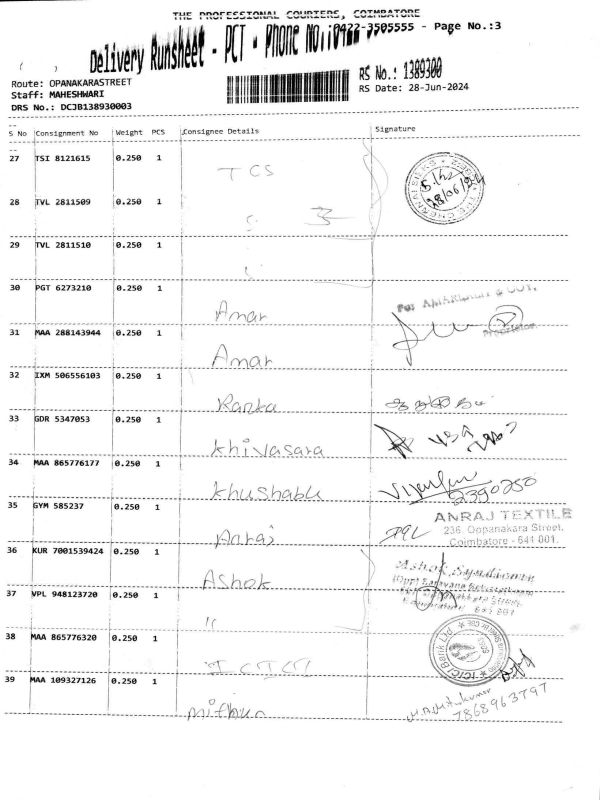 THE PROFESSIONAL COURIERS, COIMBATORE
Delivery Runsheet - PCT - Phone No.:0422-3505555 - Page No.:3
Route: OPANAKARASTREET
Staff: MAHESHWARI
DRS No.: DCJB138930003
RS No.: 1389300
RS Date: 28-Jun-2024
S No Consignment No Weight PCS Consignee Details Signature
27 TSI 8121615 0.250 1 TCS
28/06/24
28 TVL 2811509 0.250 1
29 TVL 2811510 0.250 1 "
30 PGT 6273210 0.250 1 Amar
31 MAA 288143944 0.250 1 Amar
32 IXM 506556103 0.250 1 Ranka
33 GDR 5347053 0.250 1 Khivasara
34 MAA 865776177 0.250 1 Khushabu
2390250
35 GYM 585237 0.250 1 Anraj
ANRAJ TEXTILE
236, Oppanakara Street,
Coimbatore - 641 001.
36 KUR 7001539424 0.250 1 Ashok
Ashok Syndicate
37 VPL 948123720 0.250 1 "
38 MAA 865776320 0.250 1 ICICI
ICICI Bank Ltd
39 MAA 109327126 0.250 1 mithun
7868963797